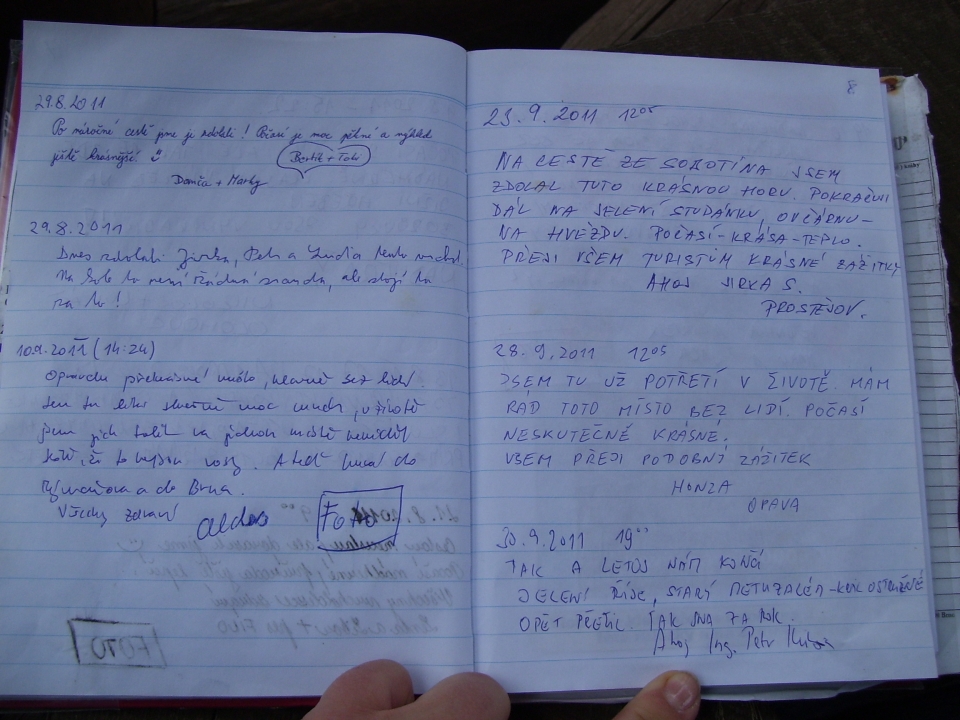 29.8.2011
Po náročné cestě jsme je zdolali! Počasí je moc pěkné a výhled
ještě krásnější!
Bertík + Tobi
Domča + Marky
29.8.2011
Dnes zdolali Jirka, Petr a Lucia tento vrchol.
Na kole to není žádná sranda, ale stojí to
za to!
10.9.2011 (14:24)
Opravdu překrásné místo, hlavně bez lidí.
Jen tu lítá moc much, v životě
jsem jich tolik na jednom místě neviděl
to nejsou vosy. A teď do
Rýmařova a do Brna.
Všechny zdraví
FOTO
FOTO
8
23.9.2011 12⁰⁵
NA CESTĚ ZE SOBOTÍNA JSEM
ZDOLAL TUTO KRÁSNOU HORU. POKRAČUJI
DÁL NA JELENÍ STUDÁNKU, OVČÁRNU-
NA HVĚZDU. POČASÍ-KRÁSA-TEPLO.
PŘEJI VŠEM TURISTŮM KRÁSNÉ ZÁŽITKY
AHOJ JIRKA S.
PROSTĚJOV.
28.9.2011 12⁰⁵
JSEM TU UŽ POTŘETÍ V ŽIVOTĚ. MÁM
RÁD TOTO MÍSTO BEZ LIDÍ. POČASÍ
NESKUTEČNĚ KRÁSNÉ.
VŠEM PŘEJI PODOBNÝ ZÁŽITEK
HONZA
OPAVA
30.9.2011 19⁰⁰
TAK A LETOS NÁM KONČÍ
JELENÍ ŘÍJE, STARÝ METUZALÉM
OPĚT PŘEŽIL. TAK SNA ZA ROK.
Ahoj Ing. Petr